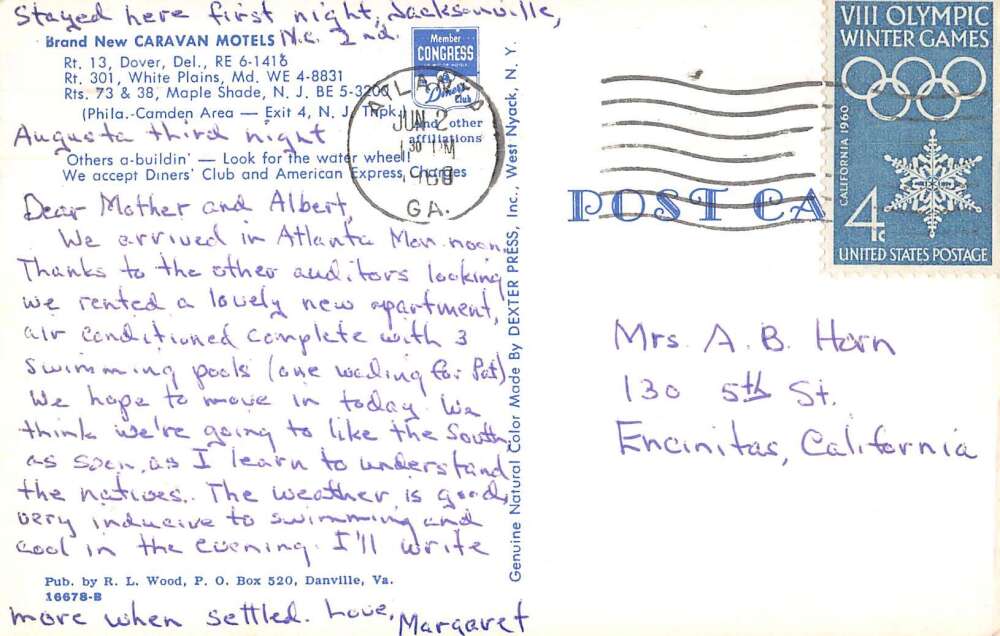 Stayed here first night, Jacksonville,
N.C. 2nd.
Brand New CARAVAN MOTELS
Rt. 13, Dover, Del., RE 6-1418
Rt. 301, White Plains, Md. WE 4-8831
Rts. 73 & 38, Maple Shade, N. J. BE 5-3200
(Phila.-Camden Area — Exit 4, N. J. Tnpk.)
Member
CONGRESS
Diners'
Club
And other
affiliations
Augusta third night
Others a-buildin' — Look for the water wheel!
We accept Diners' Club and American Express Charges
Dear Mother and Albert,
We arrived in Atlanta Mon. noon.
Thanks to the other auditors looking
we rented a lovely new apartment,
air conditioned complete with 3
swimming pools (one wading for Pat).
We hope to move in today. We
think we're going to like the South,
as soon as I learn to understand
the natives. The weather is good,
very inducive to swimming and
cool in the evening. I'll write
Pub. by R. L. Wood, P. O. Box 520, Danville, Va.
16678-B
more when settled. Love, Margaret
Genuine Natural Color Made By DEXTER PRESS, Inc., West Nyack, N. Y.
JUN 2
GA.
POST CA
VIII OLYMPIC
WINTER GAMES
CALIFORNIA 1960
4c
UNITED STATES POSTAGE
Mrs. A. B. Horn
130 5th St.
Encinitas, California